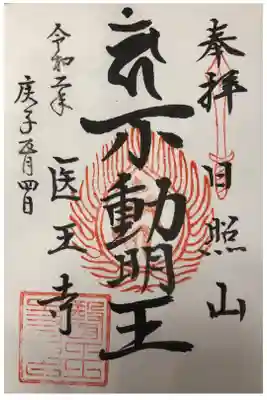 奉拝 日照山
不動明王
医王寺
令和二年
庚子五月四日